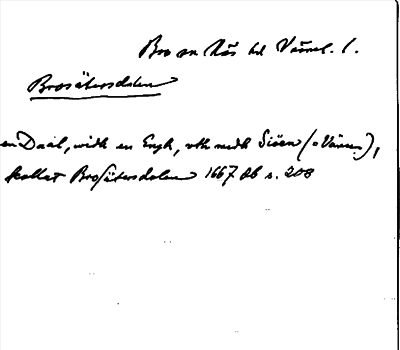 Bro sn Näs hd Värml. l.
Brosätersdalen
en Daal, widh en Engh, vth medh Siöen (= Vänern),
kallat Brosätersdalen 1667 Jb s. 208